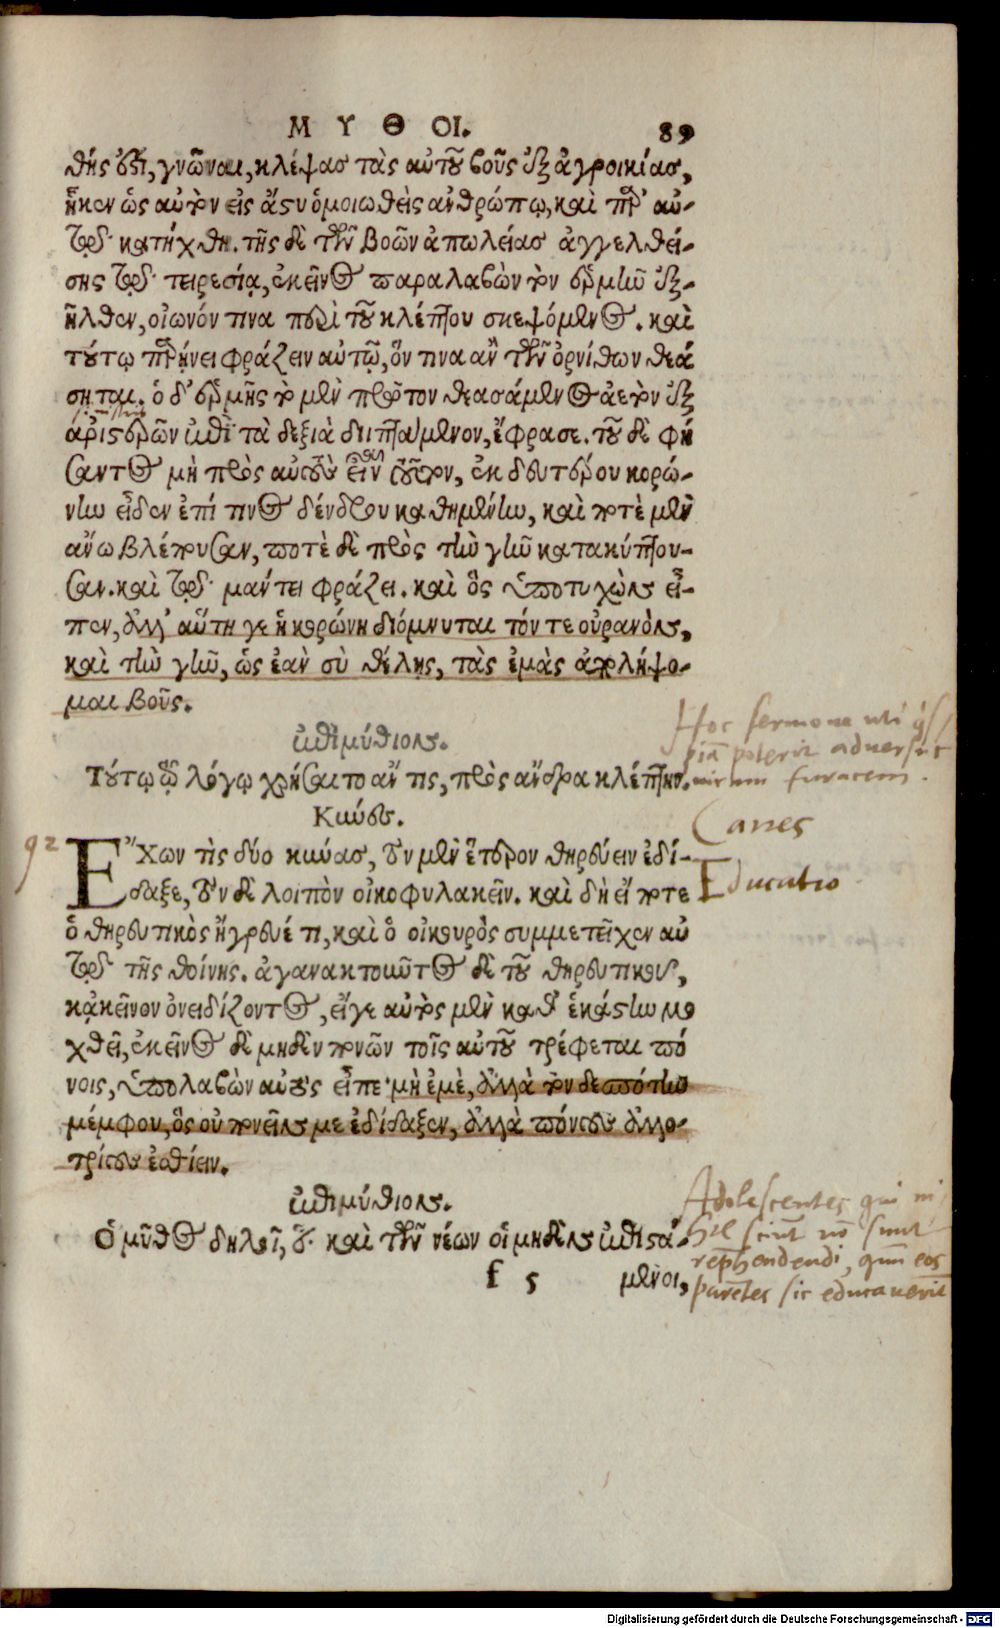 ΜΥΘΟΙ. 89
θής ἐστι, γνῶναι, κλέψας τὰς αὐτοῦ βοῦς ἐξ ἀγροικίας,
ἧκεν ὡς αὐτὸν εἰς ἄστυ ὁμοιωθεὶς ἀνθρώπῳ, καὶ παρ' αὐ-
τῷ κατήχθη. τῆς δὲ τῶν βοῶν ἀπωλείας ἀγγελθεί-
σης τῷ τειρεσίᾳ, ἐκεῖνος παραλαβὼν τὸν ἑρμῆν ἐξ-
ῆλθεν, οἰωνόν τινα περὶ τοῦ κλέπτου σκεψόμενος. καὶ
τούτῳ παρῄνει φράζειν αὐτῷ, ὅν τινα ἂν τῶν ὀρνίθων θεά
σηται. ὁ δ' ἑρμῆς τὸ μὲν πρῶτον θεασάμενος ἀετὸν ἐξ
ἀριστερῶν ἐπὶ τὰ δεξιὰ διιπτάμενον, ἔφρασε. τοῦ δὲ φή
σαντος μὴ πρὸς αὐτοὺς εἶν τοῦτον, ἐκ δευτέρου κορώ-
νην εἶδεν ἐπί τινος δένδρου καθημένην, καὶ ποτὲ μὲν
ἄνω βλέπουσαν, ποτὲ δὲ πρὸς τὴν γῆν κατακύπτου-
σαν. καὶ τῷ μάντει φράζει. καὶ ὃς ὑποτυχὼν εἶ-
πεν, ἀλλ' αὕτη γε ἡ κορώνη διόμνυται τόν τε οὐρανὸν,
καὶ τὴν γῆν, ὡς ἐὰν σὺ θέλῃς, τὰς ἐμὰς ἀπολήψο-
μαι βοῦς.
ἐπιμύθιον.
Hoc sermone uti quis
piam poterit adversus
virum furacem.
Τούτῳ τῷ λόγῳ χρήσαιτο ἄν τις, πρὸς ἄνδρα κλέπτην.
Κύνες.
Canes
92
ἜΧων τὶς δύο κύνας, τὸν μὲν ἕτερον θηρεύειν ἐδί-
Educatio
δαξε, τὸν δὲ λοιπὸν οἰκοφυλακεῖν. καὶ δὴ εἴ ποτε
ὁ θηρευτικὸς ἤγρευέ τι, καὶ ὁ οἰκουρὸς συμμετεῖχεν αὐ
τῷ τῆς θοίνης. ἀγανακτοῦντος δὲ τοῦ θηρευτικοῦ,
κᾀκεῖνον ὀνειδίζοντος, εἴγε αὐτὸς μὲν καθ' ἑκάστην μο
χθεῖ, ἐκεῖνος δὲ μηδὲν πονῶν τοῖς αὐτοῦ τρέφεται πό
νοις, ὑπολαβὼν αὐτὸς εἶπε· μὴ ἐμὲ, ἀλλὰ τὸν δεσπότην
μέμφου, ὃς οὐ πονεῖν με ἐδίδαξεν, ἀλλὰ πόνους ἀλλο-
τρίους ἐσθίειν.
ἐπιμύθιον.
Adolescentes qui ni
hil sciunt non sunt
reprehendendi, quum eos
parentes sic educaverint
Ὁ μῦθος δηλοῖ, ὅτι καὶ τῶν νέων οἱ μηδὲν ἐπιστά-
f 5 μενοι,
Digitalisierung gefördert durch die Deutsche Forschungsgemeinschaft - DFG